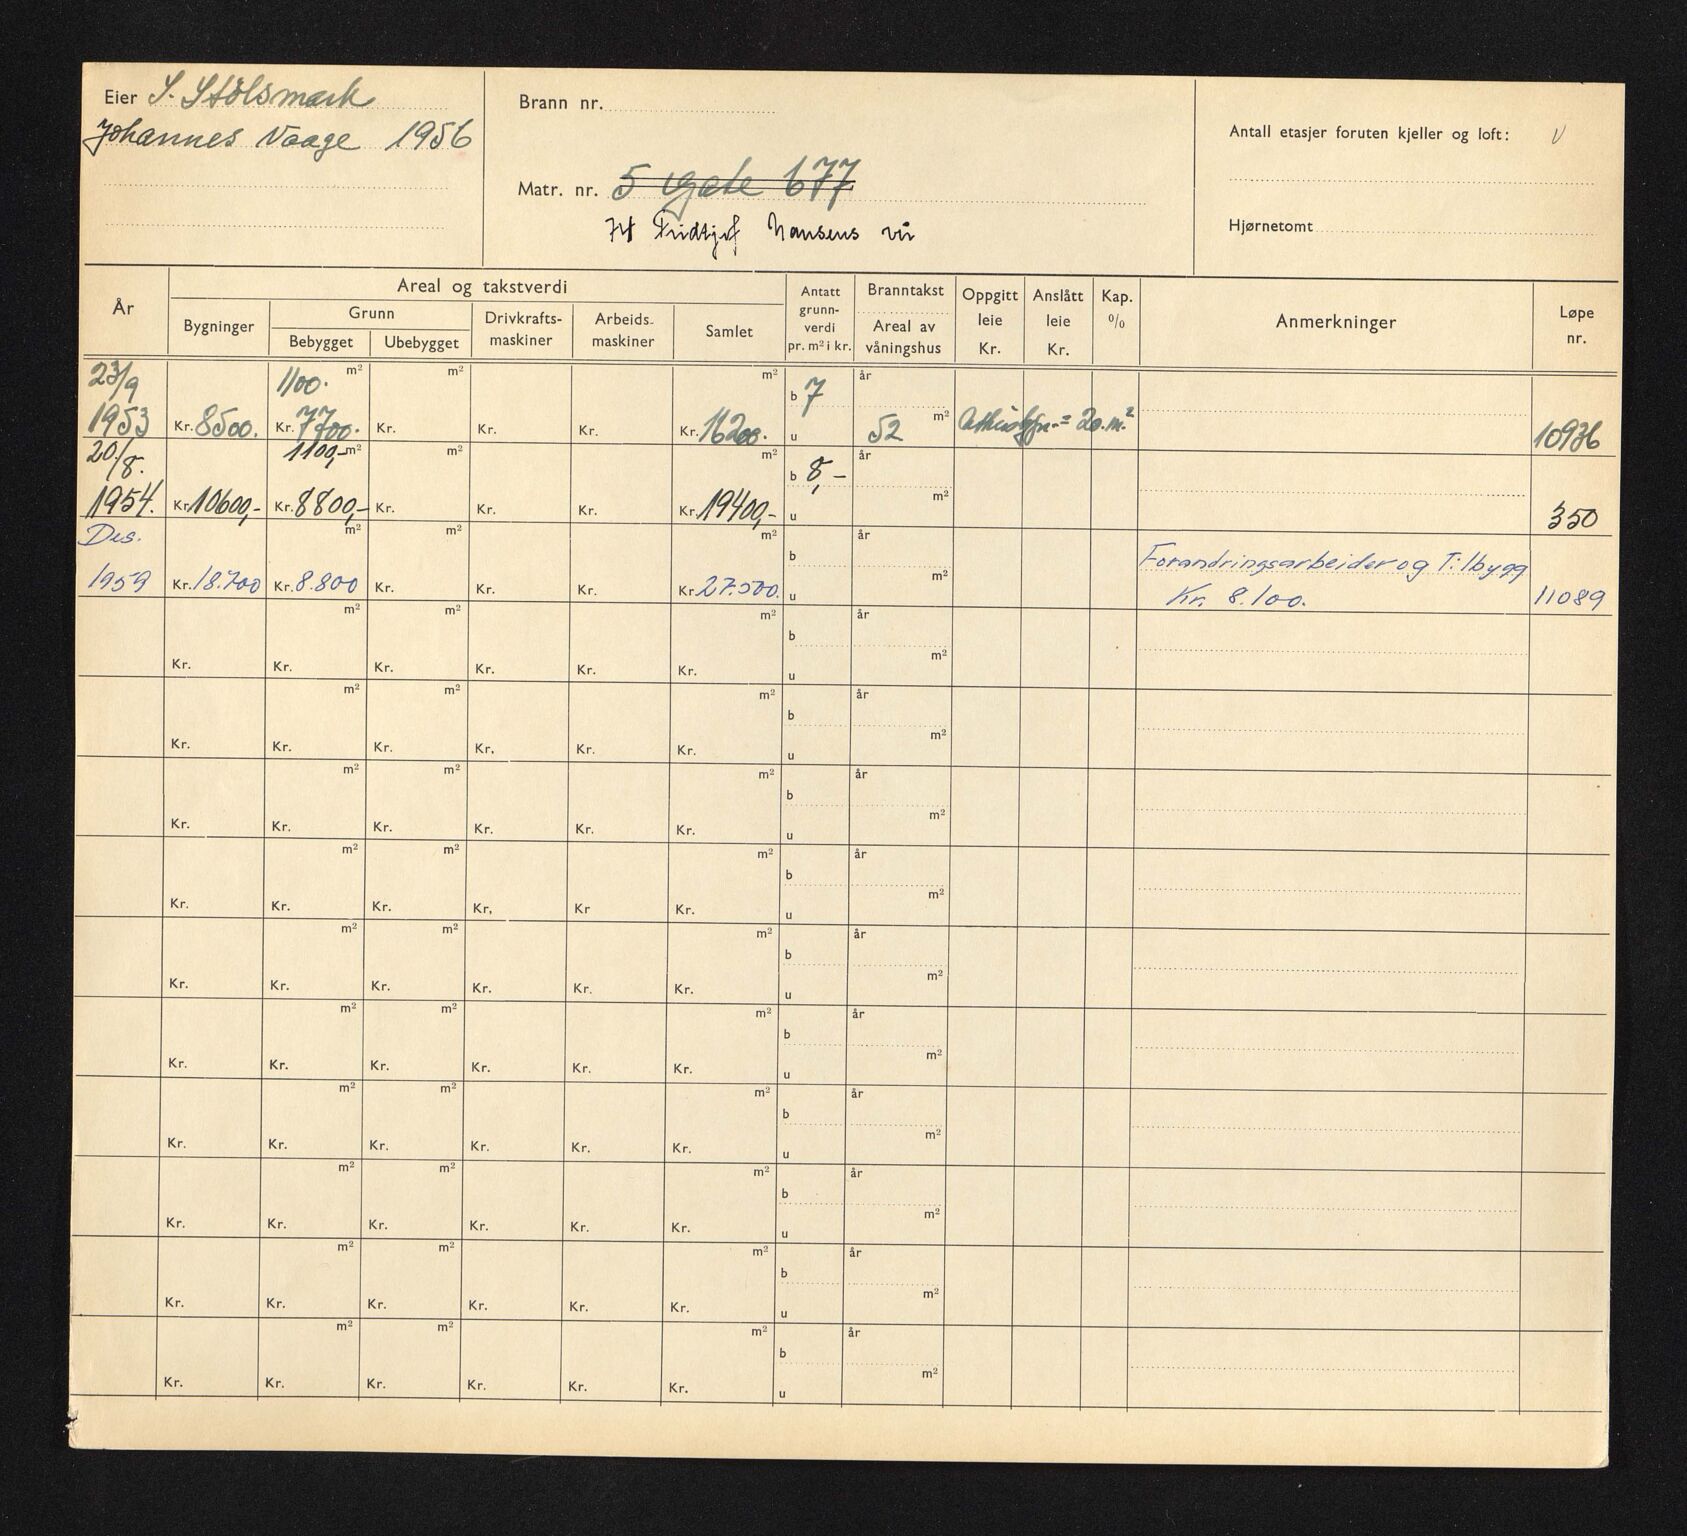 Eier S. Stölsmark
Johannes Vaage 1956
Brann nr.
Matr. nr. 5 gate 677
Fridtjof Nansens vei
Antall etasjer foruten kjeller og loft:
Hjørnetomt
År
Areal og takstverdi
Bygninger
Grunn
Bebygget Ubebygget
Drivkrafts-
maskiner
Arbeids-
maskiner
Samlet
Antatt
grunn-
verdi
pr. m² i kr.
Branntakst
Areal av
våningshus
Oppgitt
leie
Kr.
Anslått
leie
Kr.
Kap.
%
Anmerkninger
Løpe
nr.
23/9 1100. m² m² m² b 7 år
1953 Kr. 8500. Kr. 7700. Kr. Kr. Kr. Kr. 16200. u 52 m² = 20. m² 10936
20/8. 1100,- m² m² m² b 8,- år
1954. Kr. 10600,- Kr. 8800,- Kr. Kr. Kr. Kr. 19400,- u m² 350
Des. m² m² m² b år Forandringsarbeider og Tilbygg
1959 Kr. 18.700 Kr. 8.800 Kr. Kr. Kr. Kr. 27.500. u m² Kr. 8.100. 11089
m² m² m² b år
Kr. Kr. Kr. Kr. Kr. Kr. u m²
m² m² m² b år
Kr. Kr. Kr. Kr. Kr. Kr. u m²
m² m² m² b år
Kr. Kr. Kr. Kr. Kr. Kr. u m²
m² m² m² b år
Kr. Kr. Kr. Kr, Kr Kr. u m²
m² m² m² b år
Kr. Kr. Kr. Kr. Kr. Kr. u m²
m² m² m² b år
Kr. Kr. Kr. Kr. Kr. Kr. u m²
m² m² m² b år
Kr. Kr. Kr. Kr. Kr. Kr. u m²
m² m² m² b år
Kr. Kr. Kr. Kr. Kr. Kr. u m²
m² m² m² b år
Kr. Kr. Kr. Kr. Kr. Kr. u m²
m² m² m² b år
Kr. Kr. Kr. Kr. Kr. Kr. u m²